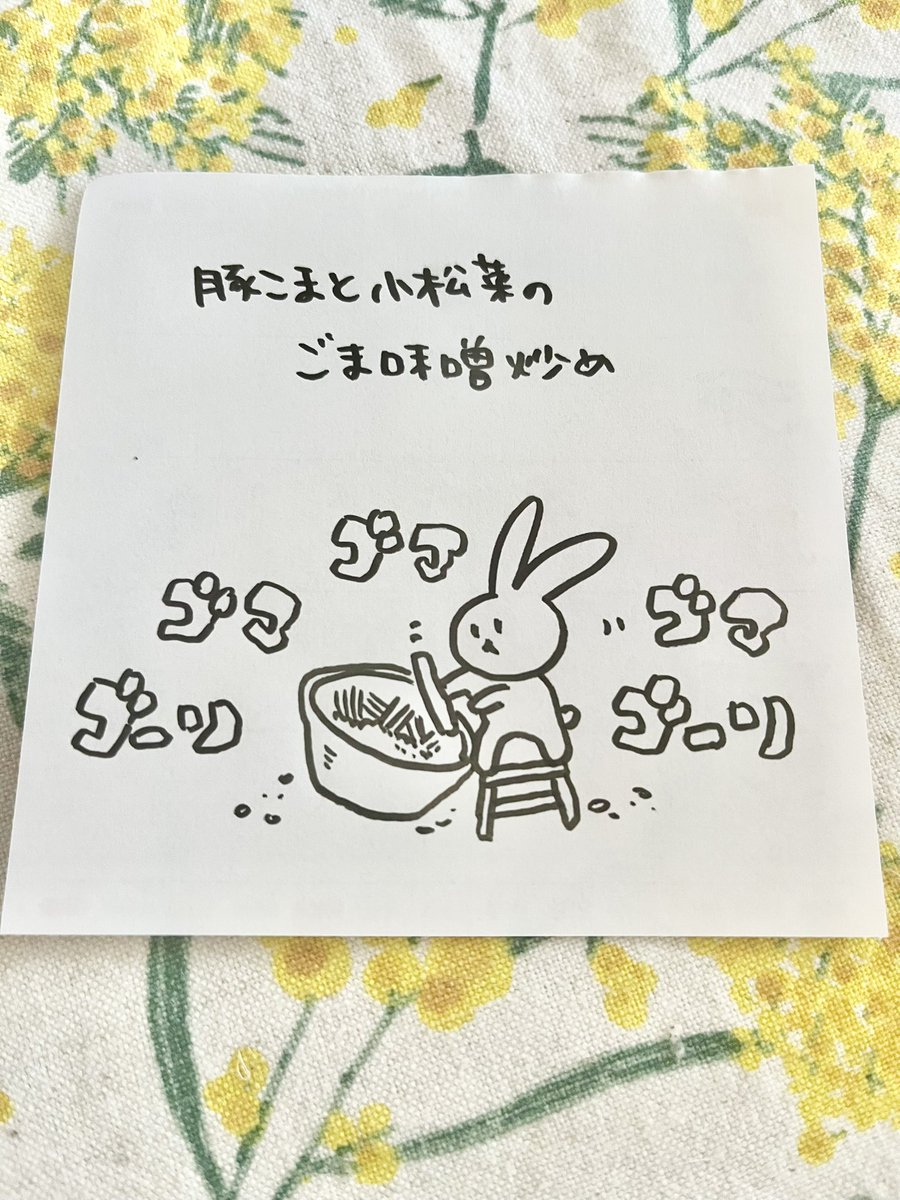 豚こまと小松菜の
ごま味噌炒め
ゴマ
ゴマ
ゴマ
ゴーリ
ゴーリ